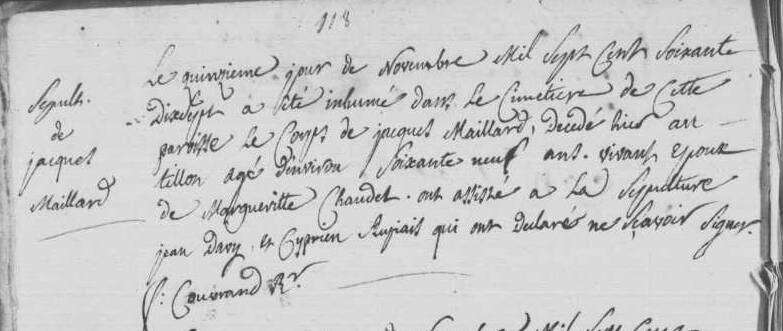 118
Sepult.
de
jacques
Maillard
Le quinzieme jour de Novembre Mil Sept Cent Soixante
Dixsept a été inhumé dans le Cimetiere de Cette
paroisse le Corps de jacques Maillard, decedé hier au
tillon agé d'environ Soixante neuf ans. vivant Epoux
de Margueritte Chaudet. ont assisté a La Sepulture
jean Davy, et Cyprien qui ont declaré ne Sçavoir Signer.